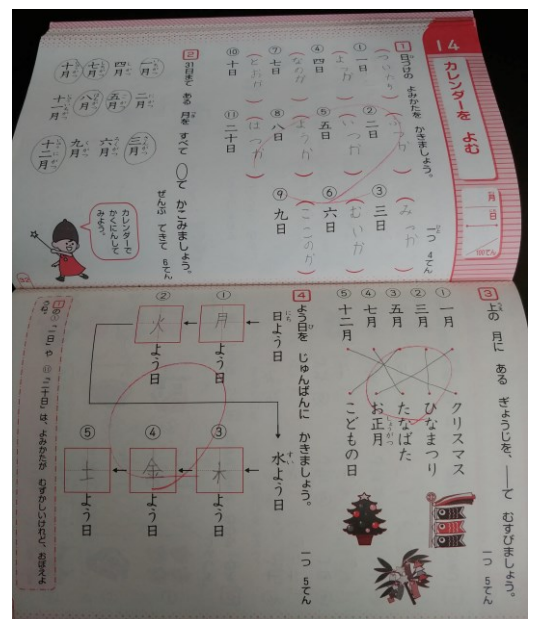 14
カレンダーを よむ
月
日
100てん
1 日づけの よみかたを かきましょう。
一つ 4てん
① 一日 (ついたち)
② 二日 (ふつか)
③ 三日 (みっか)
④ 四日 (よっか)
⑤ 五日 (いつか)
⑥ 六日 (むいか)
⑦ 七日 (なのか)
⑧ 八日 (ようか)
⑨ 九日 (ここのか)
⑩ 十日 (とおか)
⑪ 二十日 (はつか)
2 31日まで ある 月を すべて ○で かこみましょう。
ぜんぶ できて 6てん
一月 二月 三月
四月 五月 六月
七月 八月 九月
十月 十一月 十二月
カレンダーで
かくにんして
みよう。
3 上の 月に ある ぎょうじを、――で むすびましょう。
一つ 5てん
① 一月
② 三月
③ 五月
④ 七月
⑤ 十二月
クリスマス
ひなまつり
たなばた
お正月
こどもの日
4 よう日を じゅんばんに かきましょう。
一つ 5てん
日よう日
① 月よう日
② 火よう日
水よう日
③ 木よう日
④ 金よう日
⑤ 土よう日
1の ② 「二日」や ⑪ 「二十日」は、よみかたが むずかしいけれど、おぼえよ
うね。